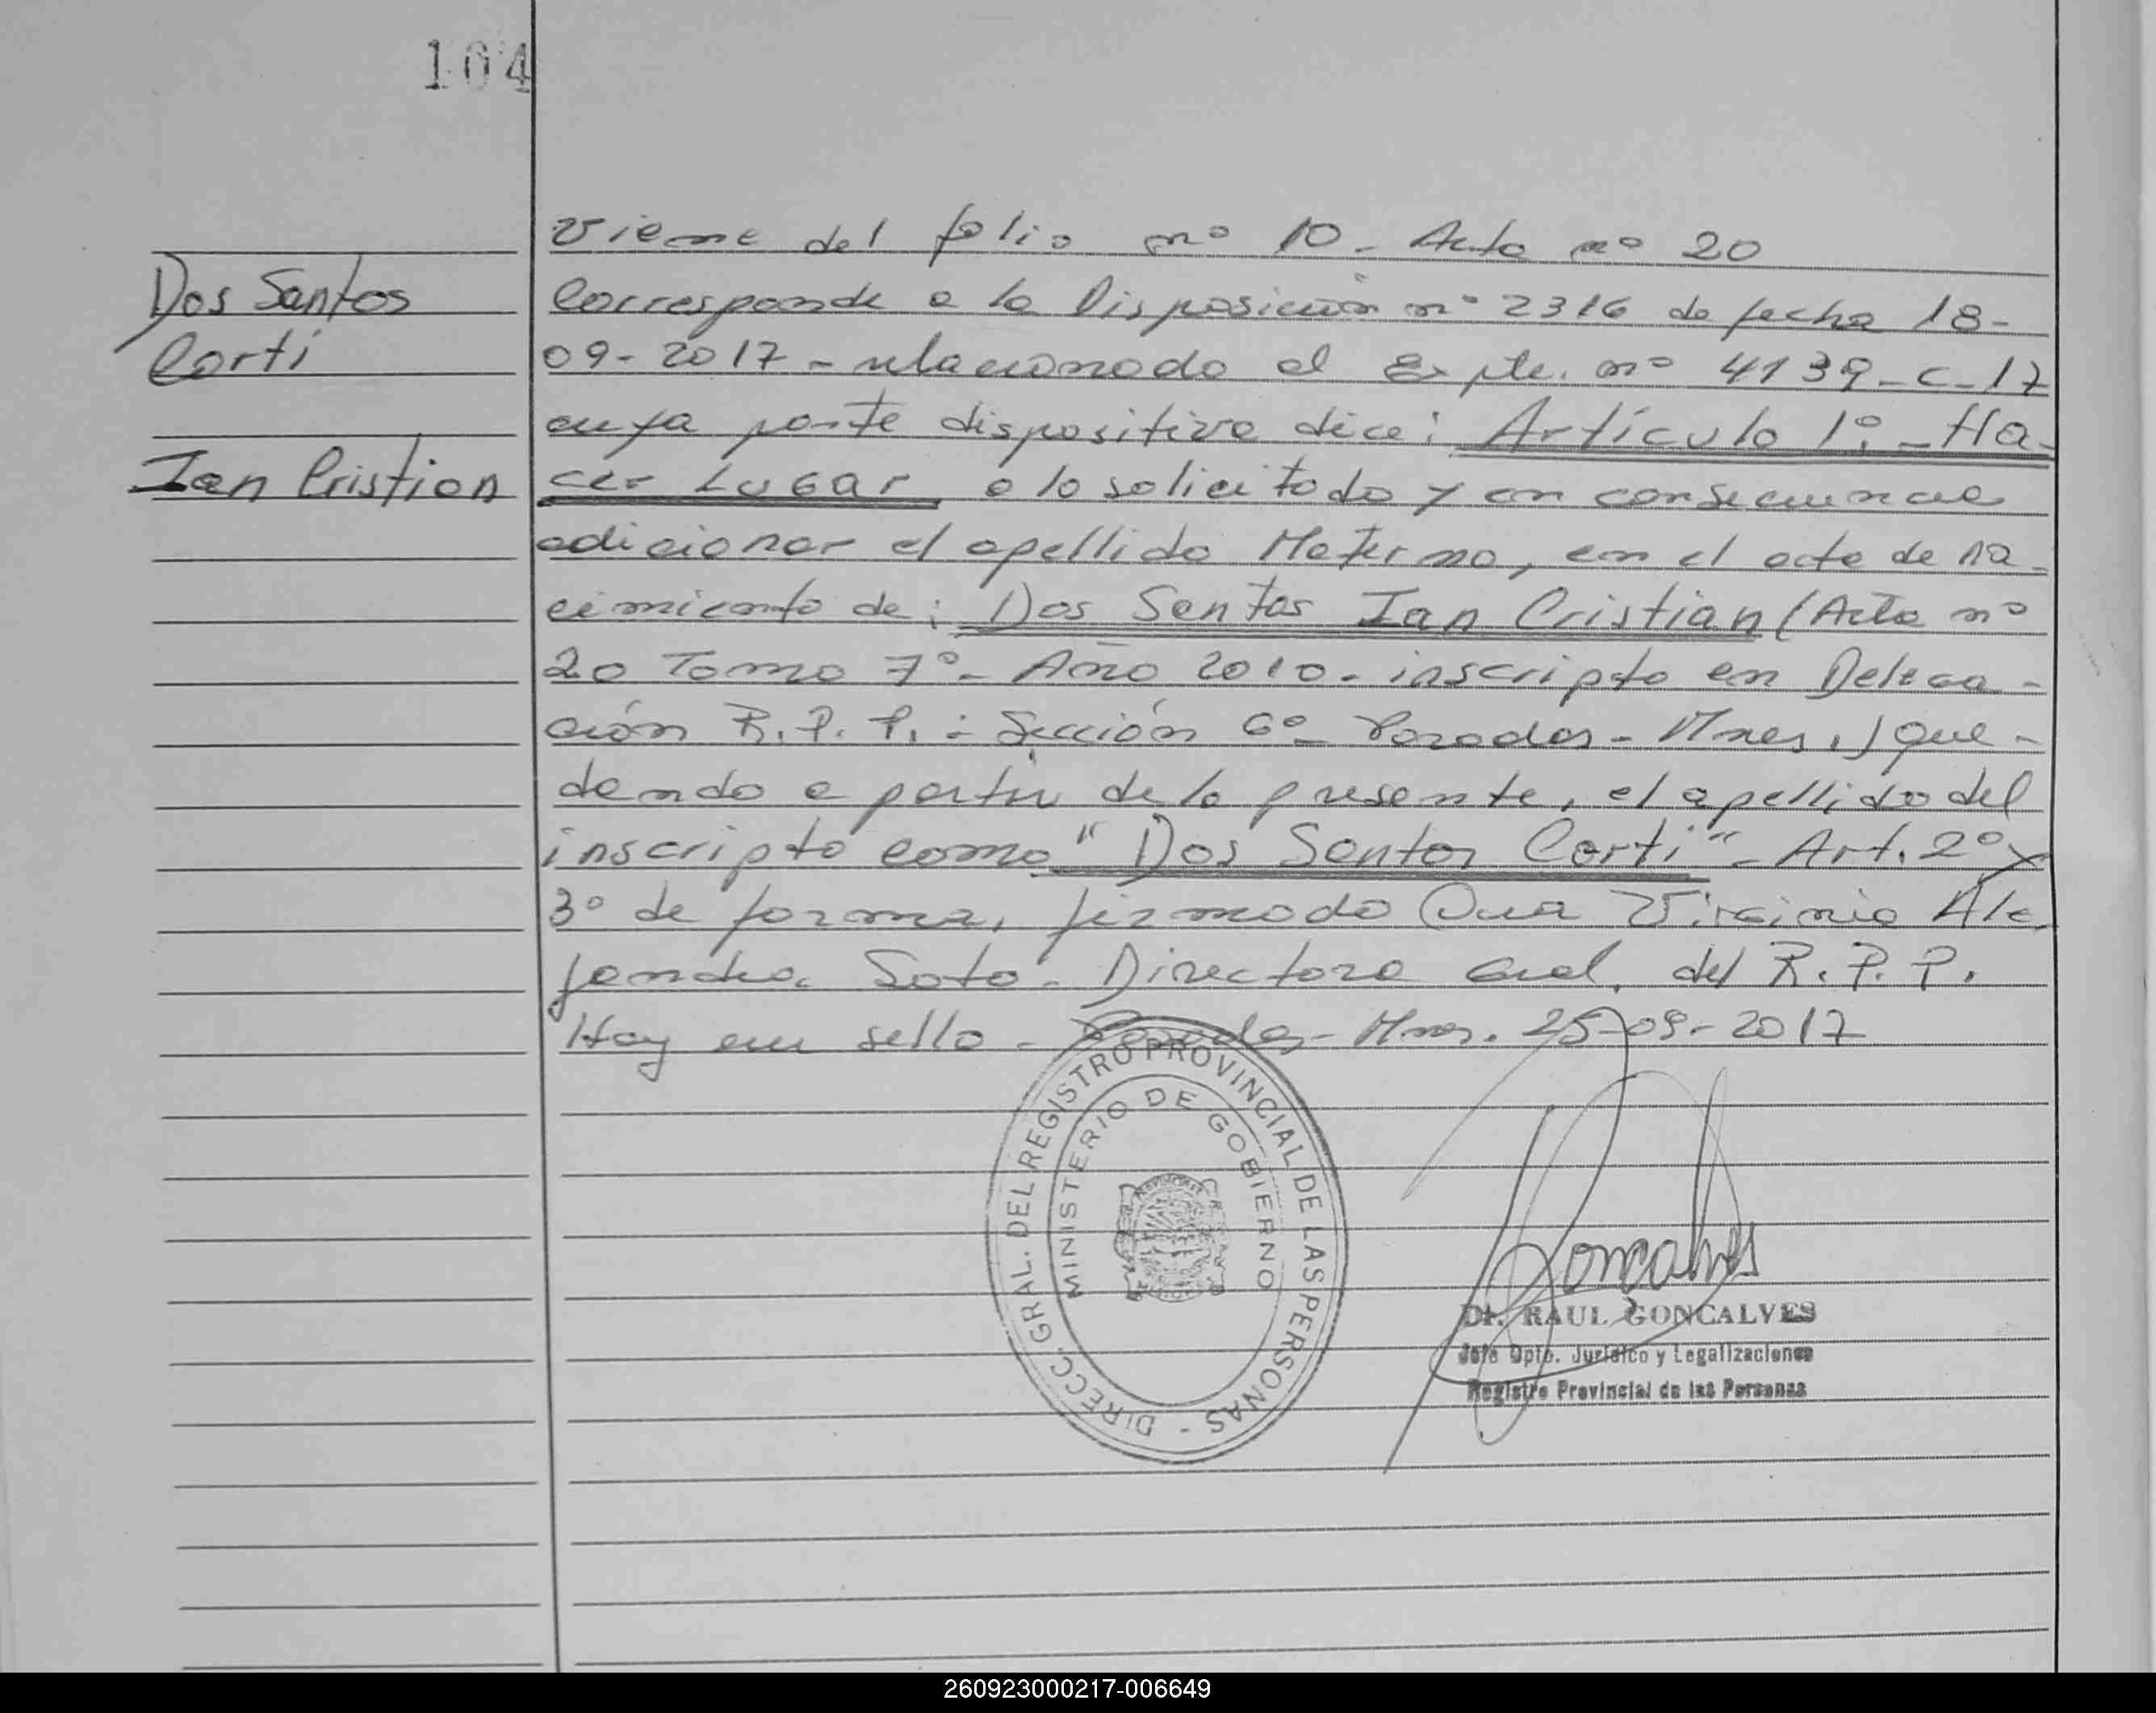 104
Dos Santos
Corti
Ian Cristian
Viene del folio nº 10 - Acta nº 20
Corresponde a la Disposición nº 2316 de fecha 18-
09-2017 - relacionado al Expte. nº 4139-C-17
cuya parte dispositiva dice: Artículo 1º: - Ha-
cer Lugar, a lo solicitado y en consecuencia
adicionar el apellido Materno, en el acta de na-
cimiento de: Dos Santos Ian Cristian (Acta nº
20 Tomo 7º - Año 2010 - inscripto en Delega-
ción R.P.P. - Sección 6º - Posadas - Mnes.) que-
dando a partir de la presente, el apellido del
inscripto como "Dos Santos Corti" - Art. 2º y
3º de forma, firmado Virginia Ale
jandra Soto - Directora Gral. del R.P.P.
Hay un sello - Posadas - Mnes. 25-09-2017
DIRECC. GRAL. DEL REGISTRO PROVINCIAL DE LAS PERSONAS -
MINISTERIO DE GOBIERNO
Goncalves
Dr. RAUL GONCALVES
Jefe Dpto. Jurídico y Legalizaciones
Registro Provincial de las Personas
260923000217-006649